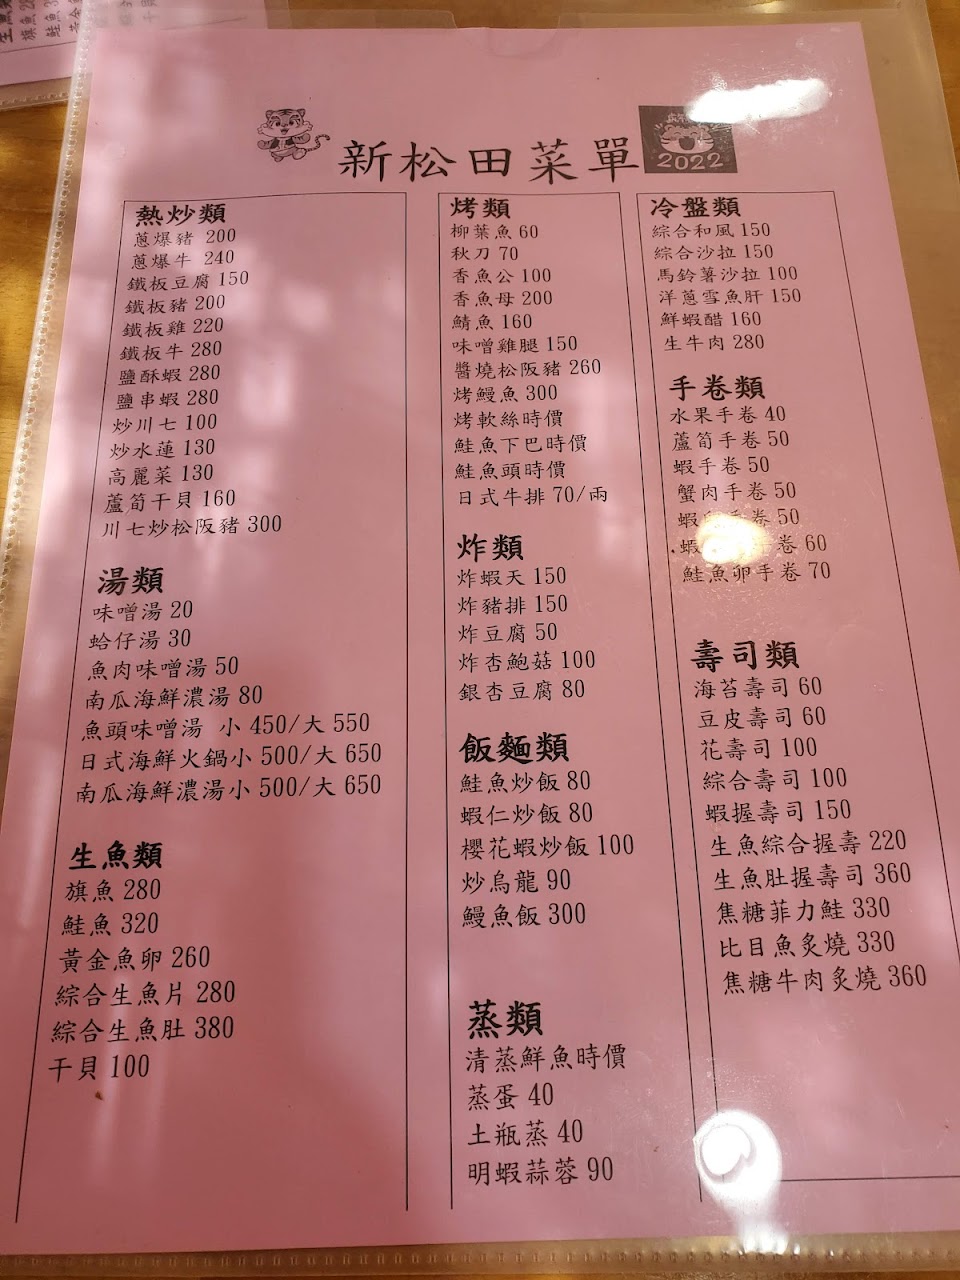 新松田菜單
2022
熱炒類
蔥爆豬 200
蔥爆牛 240
鐵板豆腐 150
鐵板豬 200
鐵板雞 220
鐵板牛 280
鹽酥蝦 280
鹽串蝦 280
炒川七 100
炒水蓮 130
高麗菜 130
蘆筍干貝 160
川七炒松阪豬 300
湯類
味噌湯 20
蛤仔湯 30
魚肉味噌湯 50
南瓜海鮮濃湯 80
魚頭味噌湯 小 450/大 550
日式海鮮火鍋小 500/大 650
南瓜海鮮濃湯小 500/大 650
生魚類
旗魚 280
鮭魚 320
黃金魚卵 260
綜合生魚片 280
綜合生魚肚 380
干貝 100
烤類
柳葉魚 60
秋刀 70
香魚公 100
香魚母 200
鯖魚 160
味噌雞腿 150
醬燒松阪豬 260
烤鰻魚 300
烤軟絲時價
鮭魚下巴時價
鮭魚頭時價
日式牛排 70/兩
炸類
炸蝦天 150
炸豬排 150
炸豆腐 50
炸杏鮑菇 100
銀杏豆腐 80
飯麵類
鮭魚炒飯 80
蝦仁炒飯 80
櫻花蝦炒飯 100
炒烏龍 90
鰻魚飯 300
蒸類
清蒸鮮魚時價
蒸蛋 40
土瓶蒸 40
明蝦蒜蓉 90
冷盤類
綜合和風 150
綜合沙拉 150
馬鈴薯沙拉 100
洋蔥雪魚肝 150
鮮蝦醋 160
生牛肉 280
手卷類
水果手卷 40
蘆筍手卷 50
蝦手卷 50
蟹肉手卷 50
蝦手卷 50
蝦卷 60
鮭魚卵手卷 70
壽司類
海苔壽司 60
豆皮壽司 60
花壽司 100
綜合壽司 100
蝦握壽司 150
生魚綜合握壽 220
生魚肚握壽司 360
焦糖菲力鮭 330
比目魚炙燒 330
焦糖牛肉炙燒 360